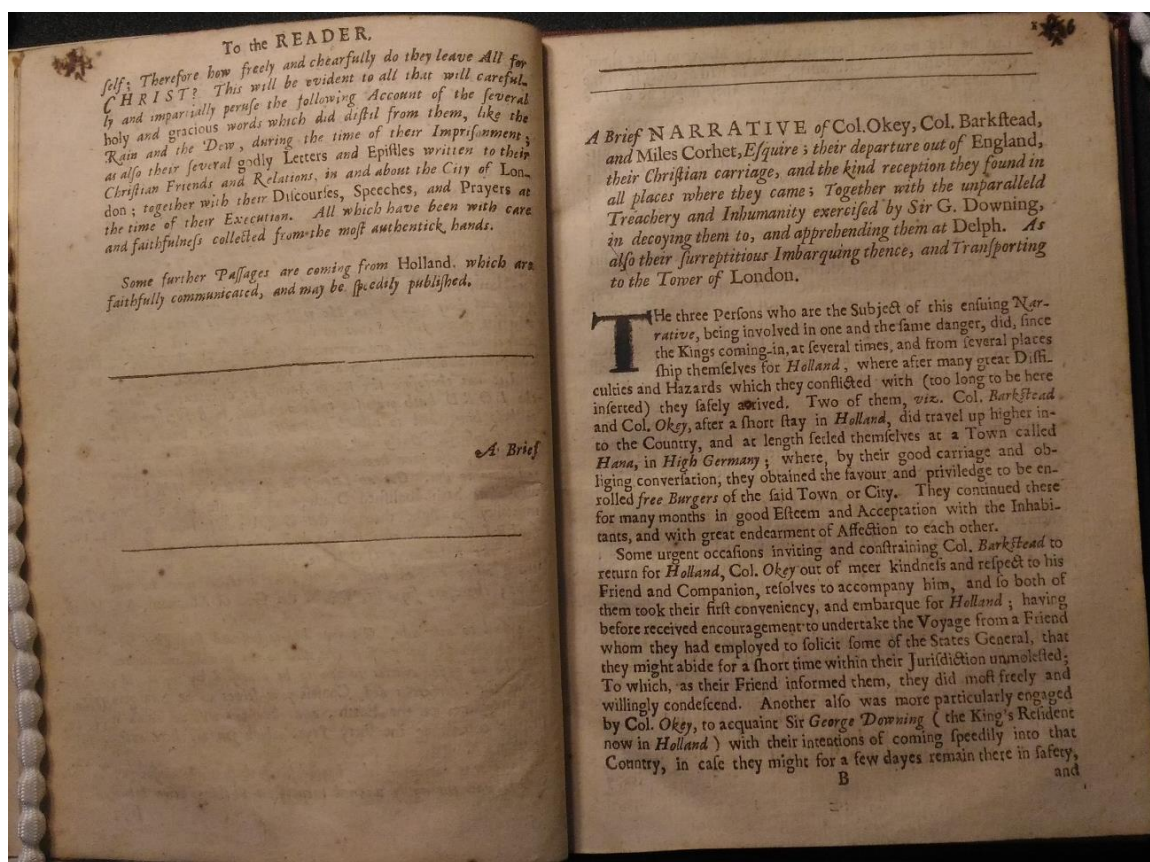 To the READER.
ſelf; Therefore how freely and chearfully do they leave All for
CHRIST? This will be evident to all that will careful-
ly and impartially peruſe the following Account of the ſeveral
holy and gracious words which did diſtil from them, like the
Rain and the Dew, during the time of their Impriſonment;
as alſo their ſeveral godly Letters and Epiſtles written to their
Chriſtian Friends and Relations, in and about the City of Lon-
don; together with their Diſcourſes, Speeches, and Prayers at
the time of their Execution. All which have been with care
and faithfulneſs collected from the moſt authentick hands.
Some further Paſſages are coming from Holland, which are
faithfully communicated, and may be ſpeedily publiſhed.
A Brief
A Brief NARRATIVE of Col. Okey, Col. Barkſtead,
and Miles Corbet, Eſquire; their departure out of England,
their Chriſtian carriage, and the kind reception they found in
all places where they came; Together with the unparalleld
Treachery and Inhumanity exerciſed by Sir G. Downing,
in decoying them to, and apprehending them at Delph. As
alſo their ſurreptitious Imbarquing thence, and Tranſporting
to the Tower of London.
THe three Perſons who are the Subject of this enſuing Nar-
rative, being involved in one and the ſame danger, did, ſince
the Kings coming-in, at ſeveral times, and from ſeveral places
ſhip themſelves for Holland, where after many great Diffi-
culties and Hazards which they conflicted with (too long to be here
inſerted) they ſafely arrived. Two of them, viz. Col. Barkſtead
and Col. Okey, after a ſhort ſtay in Holland, did travel up higher in-
to the Country, and at length ſetled themſelves at a Town called
Hana, in High Germany; where, by their good carriage and ob-
liging converſation, they obtained the favour and priviledge to be en-
rolled free Burgers of the ſaid Town or City. They continued there
for many months in good Eſteem and Acceptation with the Inhabi-
tants, and with great endearment of Affection to each other.
Some urgent occaſions inviting and conſtraining Col. Barkſtead to
return for Holland, Col. Okey out of meer kindneſs and reſpect to his
Friend and Companion, reſolves to accompany him, and ſo both of
them took their firſt conveniency, and embarque for Holland; having
before received encouragement to undertake the Voyage from a Friend
whom they had employed to ſolicit ſome of the States General, that
they might abide for a ſhort time within their Juriſdiction unmoleſted;
To which, as their Friend informed them, they did moſt freely and
willingly condeſcend. Another alſo was more particularly engaged
by Col. Okey, to acquaint Sir George Downing (the King's Reſident
now in Holland) with their intentions of coming ſpeedily into that
Country, in caſe they might for a few dayes remain there in ſafety,
B
and